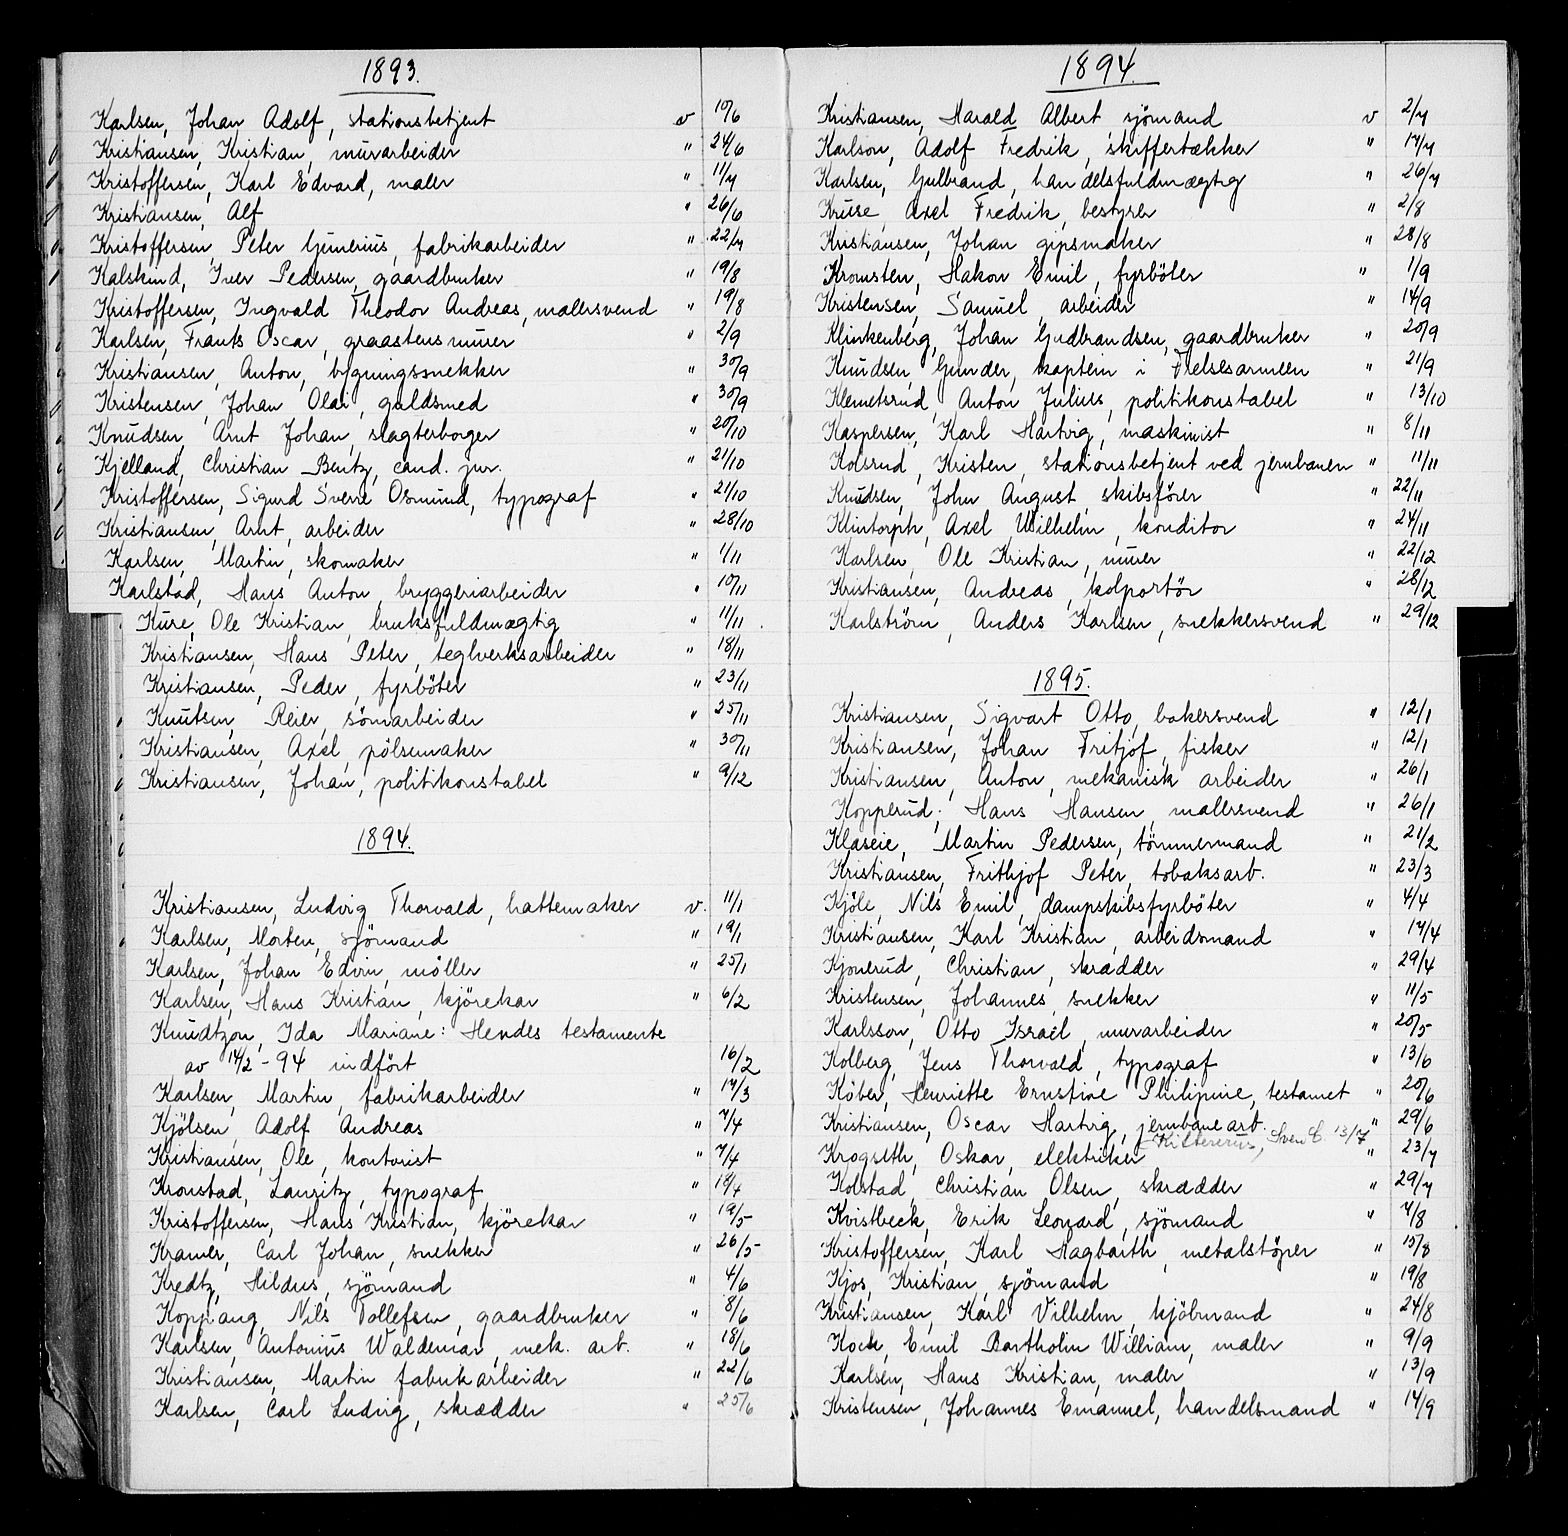 1893.
Karlsen, Johan Adolf, stationsbetjent v 10/6
Kristiansen, Kristian, murarbeider " 24/6
Kristoffersen, Karl Edvard, maler " 11/7
Kristiansen, Alf " 26/6
Kristoffersen, Peter Gunerius, fabrikarbeider " 22/7
Kalskind, Iver Pedersen, gaardbruker " 19/8
Kristoffersen, Ingvald Theodor Andreas, malersvend " 19/8
Karlsen, Frants Oscar, graastensmurer " 2/9
Kristiansen, Anton, bygningssnekker " 30/9
Kristensen, Johan Olai, guldsmed " 30/9
Knudsen, Arnt Johan, slagterborger " 20/10
Kjelland, Christian Bentz, cand. jur. " 21/10
Kristoffersen, Sigurd Sverre Osmund, typograf " 21/10
Kristiansen, Arnt, arbeider " 28/10
Karlsen, Martin, skomaker " 1/11
Karlstad, Hans Anton, bryggeriarbeider " 10/11
Kure, Ole Kristian, bruksfuldmægtig " 11/11
Kristiansen, Hans Peter, teglverksarbeider " 18/11
Kristiansen, Peder, fyrböter " 23/11
Knutsen, Reier, sömarbeider " 25/11
Kristiansen, Axel, pölsemaker " 30/11
Kristiansen, Johan, politikonstabel " 9/12
1894.
Kristiansen, Ludvig Thorvald, hattemaker v. 11/1
Karlsen, Morten, sjömand " 19/1
Karlsen, Johan Edvin, möller " 25/1
Karlsen, Hans Kristian, kjörekar " 6/2
Knudtzon, Ida Mariane: Hendes testamente
av 14/2 - 94 indfört 16/2
Karlsen, Martin, fabrikarbeider " 17/3
Kjölsen, Adolf Andreas " 7/4
Kristiansen, Ole, kontorist " 7/4
Kronstad, Lauritz, typograf " 18/4
Kristoffersen, Hans Kristian, kjörekar " 19/5
Kramer, Carl Johan, snekker " 26/5
Kredtz, Hildus, sjömand " 4/6
Koppang, Nils Tollefsen, gaardbruker " 8/6
Karlsen, Antonius Waldemar, mek. arb. " 18/6
Kristiansen, Martin fabrikarbeider " 22/6
Karlsen, Carl Ludvig, skrædder " 25/6
1894.
Kristiansen, Harald Albert sjömand v 2/7
Karlson, Adolf Fredrik, skiffertækker " 17/7
Karlsen, Gulbrand, handelsfuldmægtig " 26/7
Kruse, Axel Fredrik, bestyrer " 2/8
Kristiansen, Johan gipsmaker " 28/8
Kromsten, Hakon Emil, fyrböter " 1/9
Kristensen, Samuel, arbeider " 14/9
Klinkenberg, Johan Gudbrandsen, gaardbruker " 20/9
Knudsen, Gunder, kaptein i Frelsesarmeen " 21/9
Klemetsrud, Anton Julius, politikonstabel " 13/10
Kaspersen, Karl Hartvig, maskinist " 8/11
Kolsrud, Kristen, stationsbetjent ved jernbanen " 11/11
Knudsen, John August, skibsförer " 22/11
Klintorph, Axel Wilhelm, konditor " 24/11
Karlsen, Ole Kristian, murer " 22/12
Kristiansen, Andreas, kolportör " 28/12
Karlström, Anders Karlsen, snekkersvend " 29/12
1895.
Kristiansen, Sigvart Otto, bakersvend " 12/1
Kristiansen, Johan Fritjof, fisker " 12/1
Kristiansen, Anton, mekanisk arbeider " 26/1
Kopperud, Hans Hansen, malersvend " 26/1
Klaseie, Martin Pedersen, tömmermand " 21/2
Kristiansen, Frithjof Peter, tobaksarb. " 23/3
Kjöle, Nils Emil, dampskibsfyrböter " 4/4
Kristiansen, Karl Kristian, arbeidsmand " 17/4
Kjonerud, Christian, skrædder " 29/4
Kristensen, Johannes, snekker " 11/5
Karlsson, Otto Israel, murarbeider " 20/5
Kolberg, Jens Thorvald, typograf " 13/6
Köber, Henriette Ernstine Philipine, testamet " 20/6
Kristiansen, Oscar Hartvig, jernbanearb. " 29/6
Sven C. 13/7
Krogseth, Oskar, elektriker " 23/7
Kolstad, Christian Olsen, skrædder " 29/7
Kvistbeck, Erik Leonard, sjömand " 7/8
Kristoffersen, Karl Hagbarth, metalstöper " 15/8
Kjos, Kristian, sjömand " 19/8
Kristiansen, Karl Vilhelm, kjöbmand " 24/8
Kock, Emil Bartholm William, maler " 9/9
Karlsen, Hans Kristian, maler " 13/9
Kristensen, Johannes Emanuel, handelsmand " 14/9